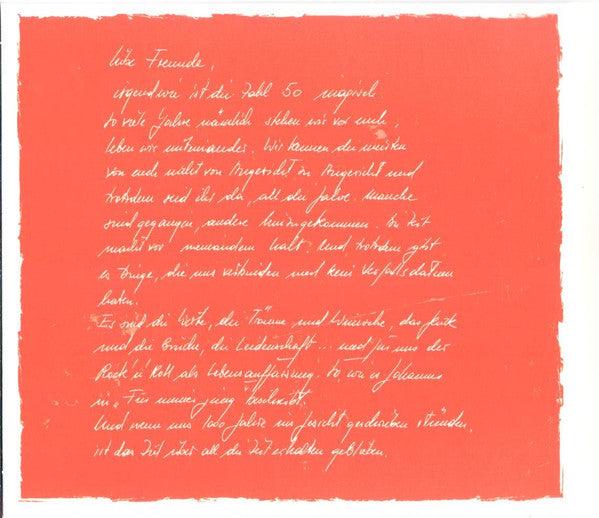 Liebe Freunde,
irgendwie ist die Zahl 50 magisch
so viele Jahre nämlich stehen wir vor euch,
leben wir miteinander. Wir kennen die meisten
von euch nicht von Angesicht zu Angesicht und
trotzdem seid ihr da, all die Jahre. Manche
sind gegangen, andere hinzugekommen. Die Zeit
macht vor niemandem halt. Und trotzdem gibt
es Dinge, die uns verbinden und kein Verfallsdatum
haben.
Es sind die Werte, die Träume und Wünsche, das
und die die Leidenschaft ... und für uns der
Rock'n'Roll als Lebensauffassung. So, wie es Johannes
in „Für immer jung" beschreibt.
Und wenn uns 1000 Jahre ins Gesicht geschrieben stünden,
ist das Zeit über all die Zeit erhalten geblieben.